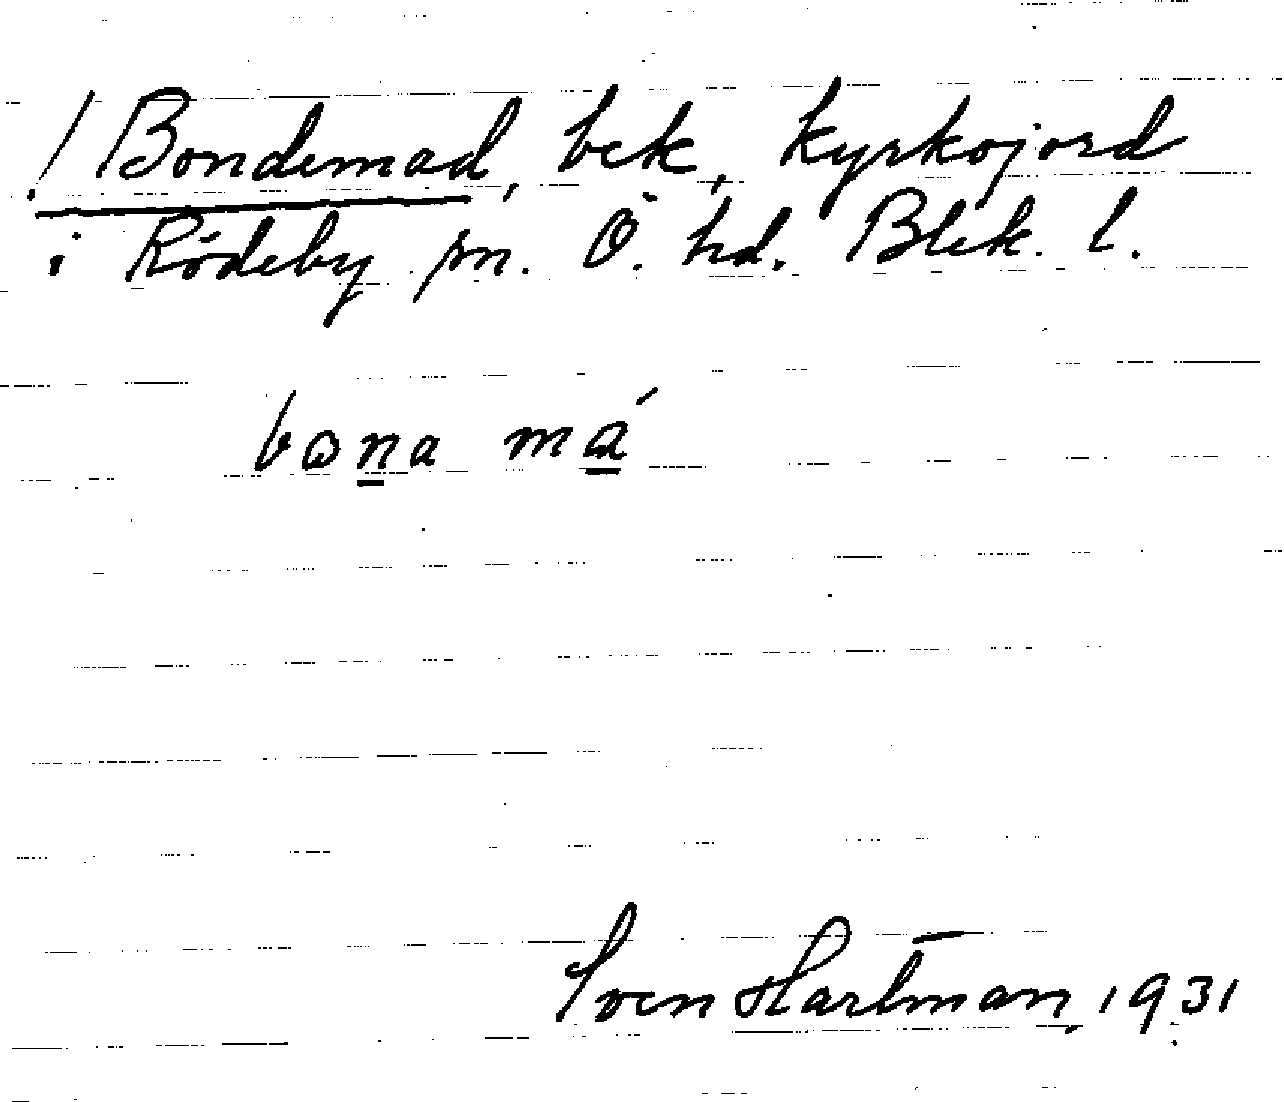 ! Bondemad, bek, Kyrkojord
i Rödeby sn. Ö. hd. Blek. l.
bona má
Sven Hartman, 1931